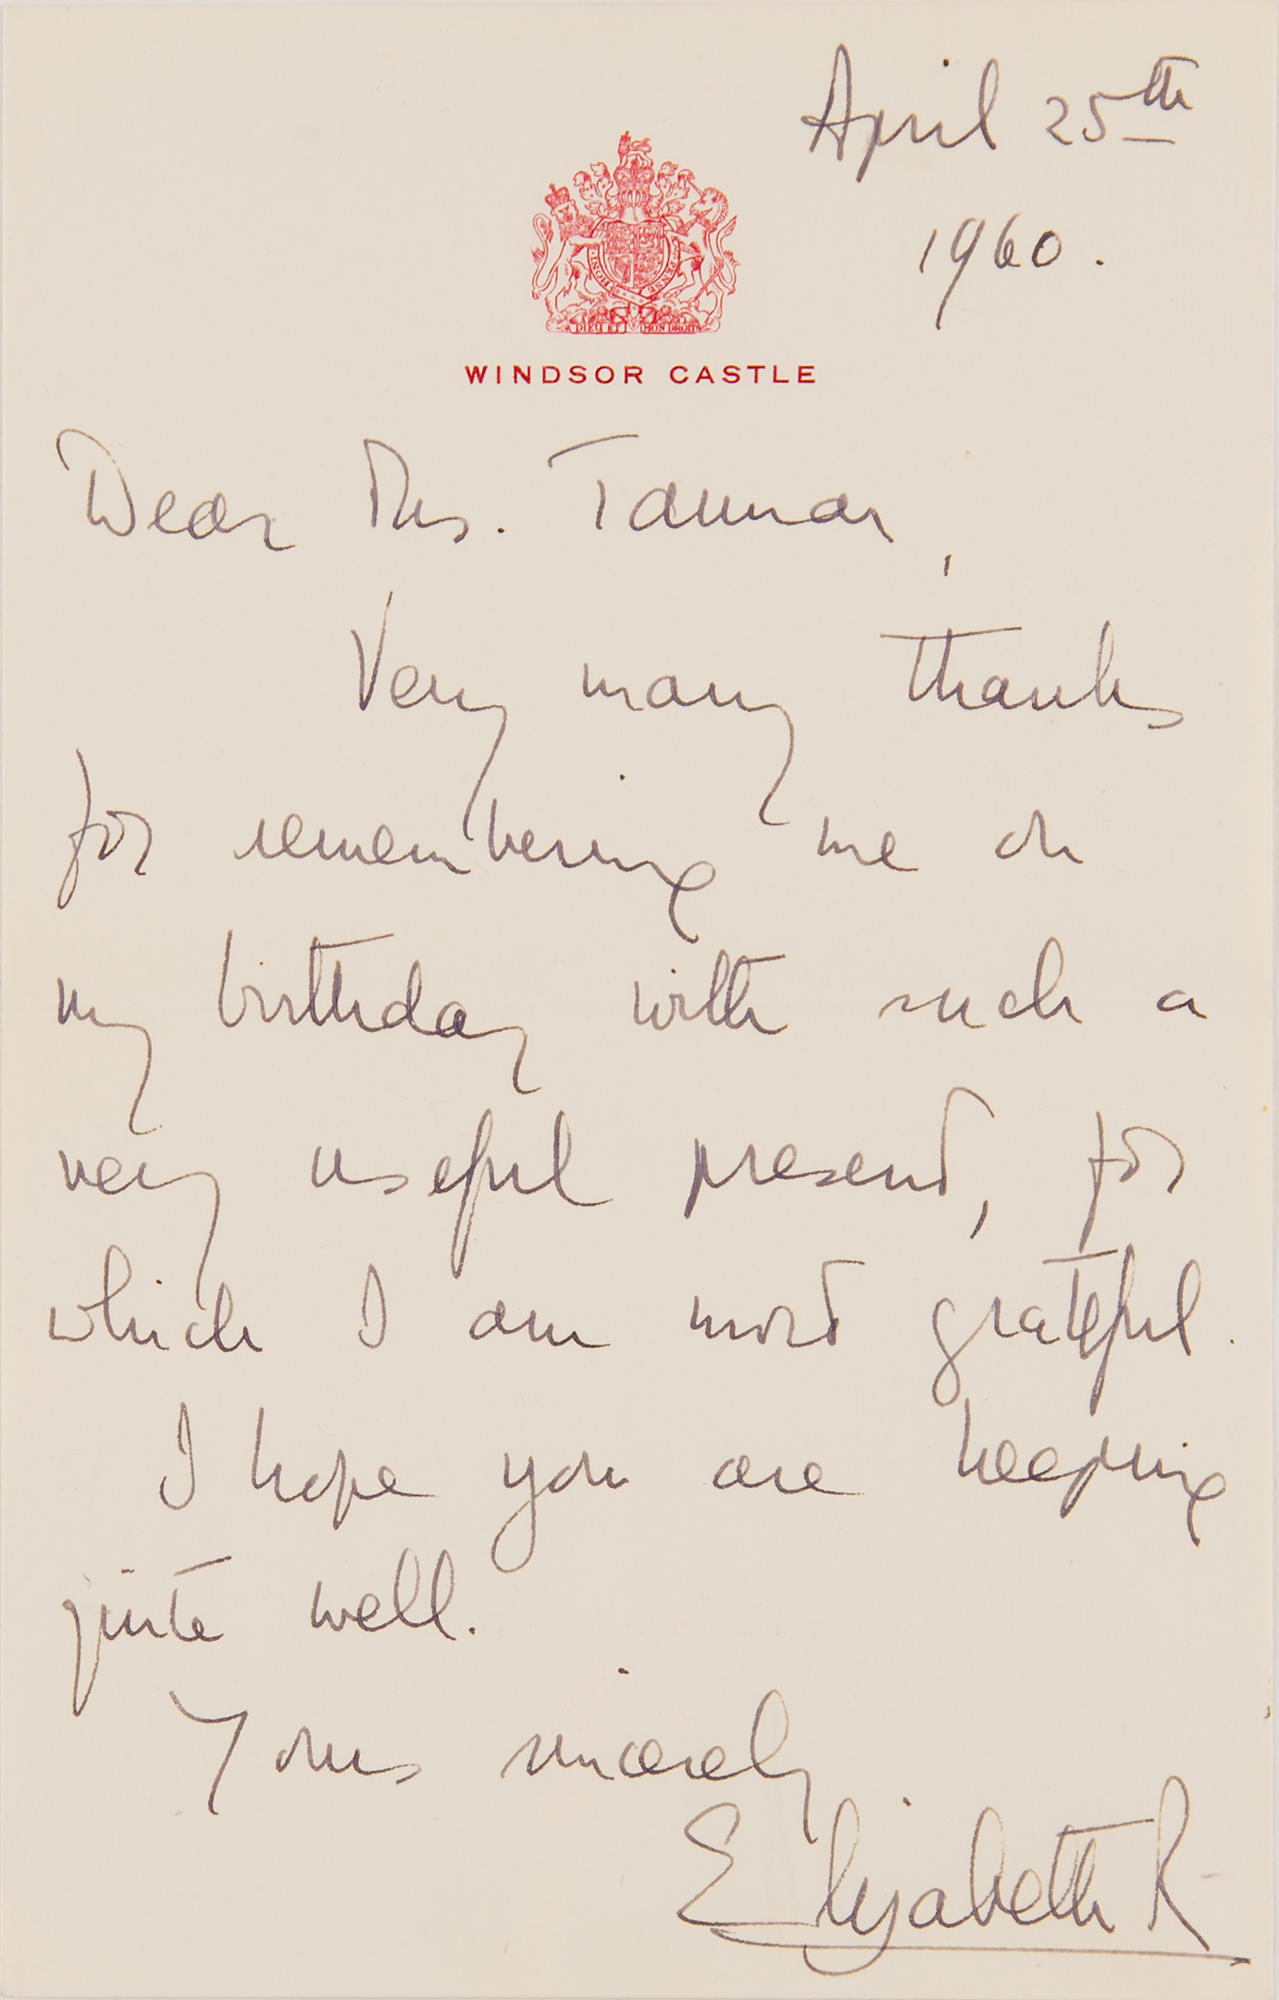 April 25th
1960.
DIEU ET MON DROIT
WINDSOR CASTLE
Dear Mrs.
Very many thanks
for remembering me on
my birthday with such a
very useful present, for
which I am most grateful.
I hope you are keeping
quite well.
Yours sincerely
Elizabeth R